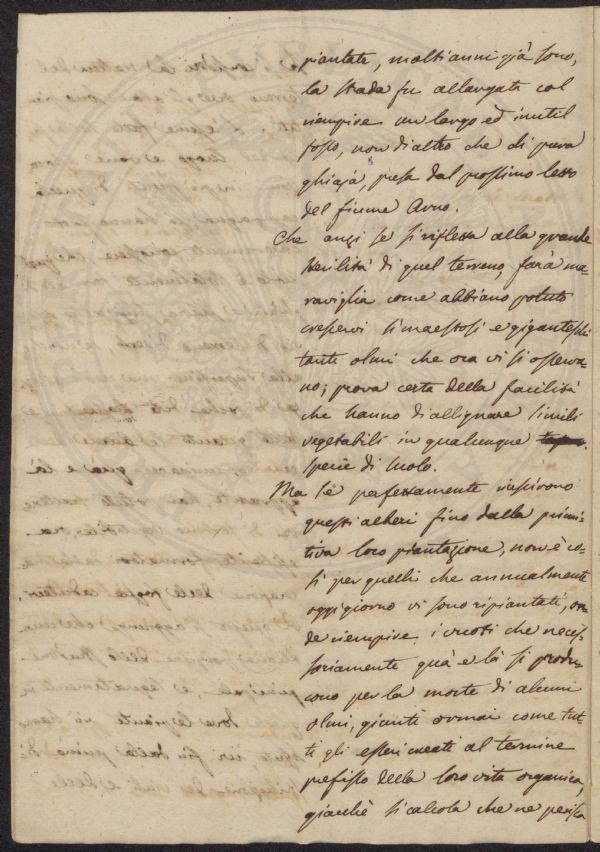 piantate, molti anni già sono,
la strada fu allargata col
riempire un largo ed inutil
fosso, non di altro che di pura
ghiaja, presa dal prossimo lesso
del fiume Arno.
Che anzi se si riflessa alla grande
sterilità di quel terreno, farà ma-
raviglia come abbiano potuto
crescervi sì maestosi e giganteschi
tanti olmi che ora vi si osserva-
no; prova certa della facilità
che hanno di allignare simili
vegetabili in qualunque
specie di suolo.
Ma se perfettamente riescirono
questi alberi fino dalla primi-
tiva loro piantagione, non è co-
sì per quelli che annualmente
oggi giorno vi sono ripiantati, on-
de riempire i vuoti che neces-
sariamente quà e là si produ-
cono per la morte di alcuni
olmi, giunti ormai come tut-
ti gli esseri creati al termine
prefisso della loro vita organica,
giacchè si calcola che ne perisca